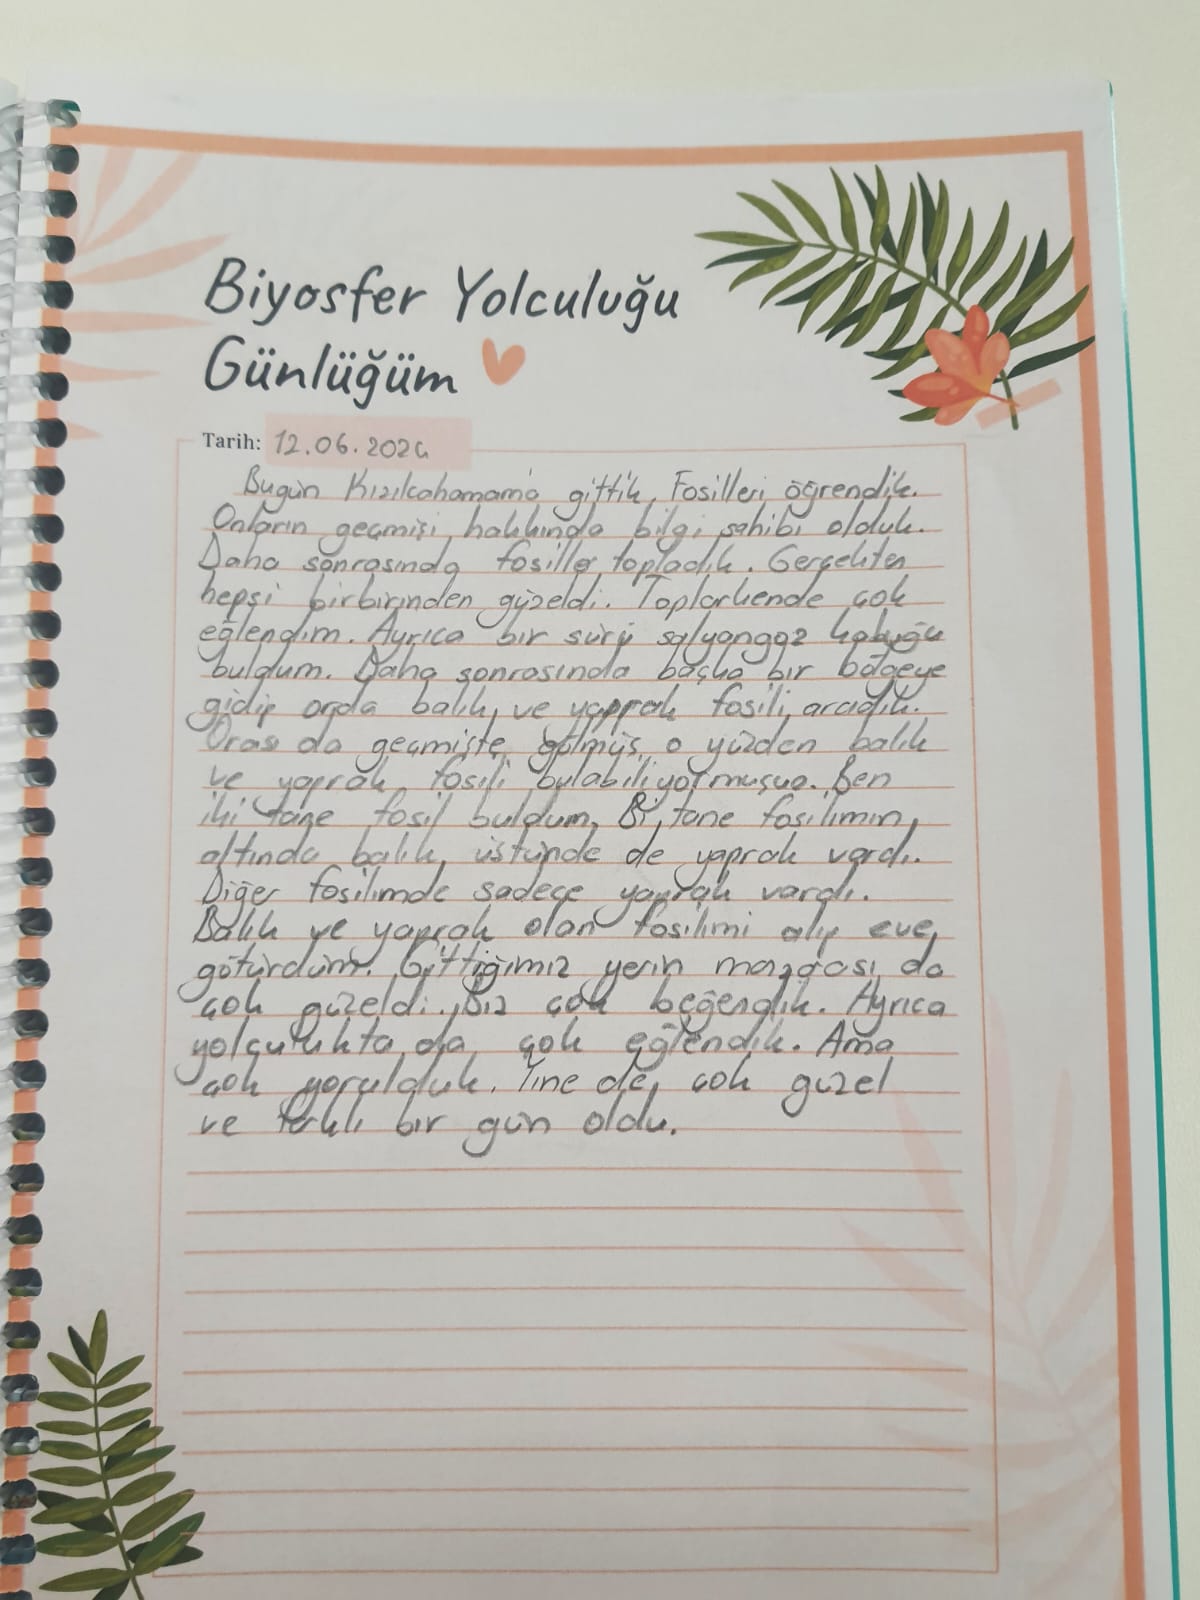 Biyosfer Yolculuğu
Günlüğüm
Tarih: 12.06.2024
Bugün Kızılcahamama gittik. Fosilleri öğrendik.
Onların geçmişi hakkında bilgi sahibi olduk.
Daha sonrasında fosiller topladık. Gerçekten
hepsi birbirinden güzeldi. Toplarkende çok
eğlendim. Ayrıca bir sürü salyangoz kabuğu
buldum. Daha sonrasında başka bir bölgeye
gidip orda balık ve yaprak fosili aradık.
Orası da geçmişte gölmüş o yüzden balık
ve yaprak fosili bulabiliyormuşuz. Ben
iki tane fosil buldum. Bi tane fosilimin
altında balık, üstünde de yaprak vardı.
Diğer fosilimde sadece yaprak vardı.
Balık ve yaprak olan fosilimi alıp eve
götürdüm. Gittiğimiz yerin manzarası da
çok güzeldi. Biz çok beğendik. Ayrıca
yolculukta da çok eğlendik. Ama
çok yorulduk. Yine de çok güzel
ve farklı bir gün oldu.